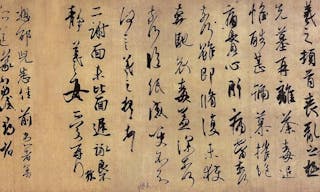 羲之頓首喪亂之極
先墓再離荼毒追
惟酷甚號慕摧絕
痛貫心肝痛當奈何
奈何雖即脩復未獲
奔馳哀毒益深奈何
奈何臨紙感哽不知
何言羲之頓首頓首
二謝面未比面遲詠良
靜羲之女愛再拜
想邵兒悉佳前患者善